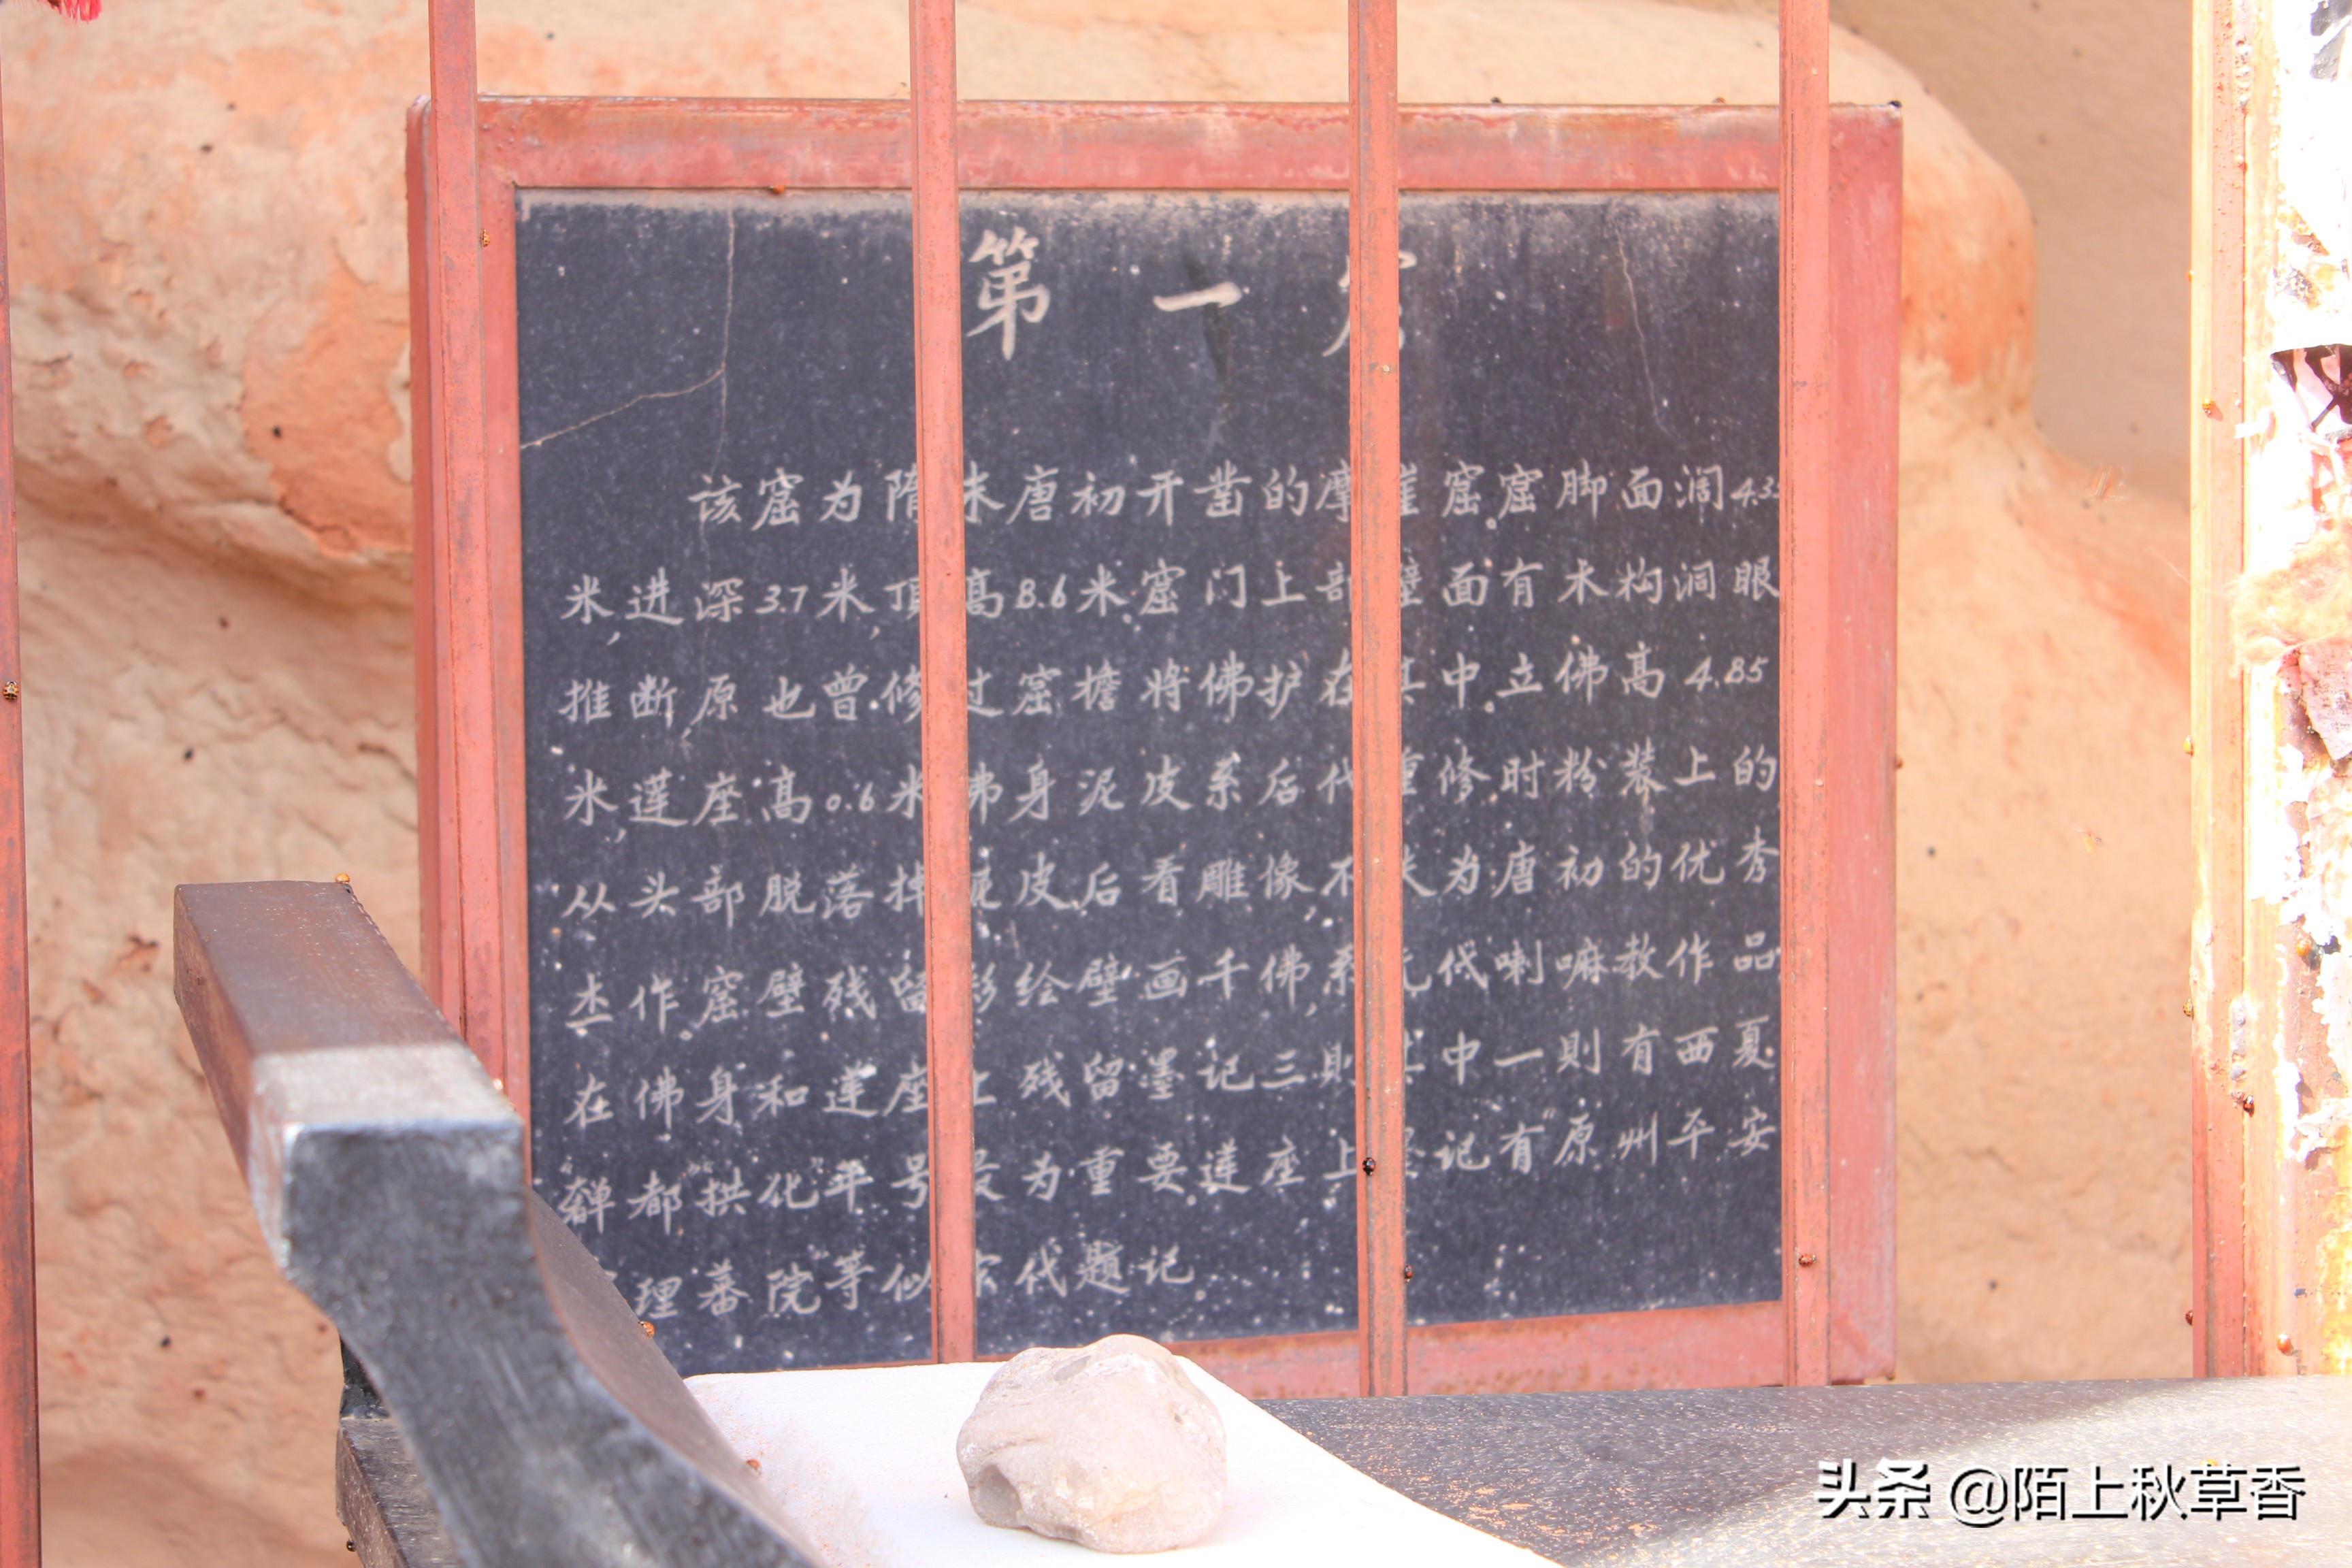 第一窟
该窟为隋末唐初开凿的摩崖窟。窟脚面阔4.3
米,进深3.7米,顶高8.6米。窟门上部壁面有木构洞眼
推断原也曾修过窟檐将佛护在其中。立佛高4.85
米,莲座高0.6米佛身泥皮系后代重修时粉装上的
从头部脱落掉泥皮后看雕像不失为唐初的优秀
杰作。窟壁残留彩绘壁画千佛,系元代喇嘛教作品
在佛身和莲座上残留墨记三则其中一则有西夏
"奲都""拱化"年号最为重要。莲座上墨记有"原州平安
理蕃院等似宋代题记
头条 @陌上秋草香